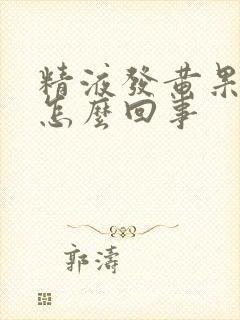 精液發黃果
怎麼回事
郭濤